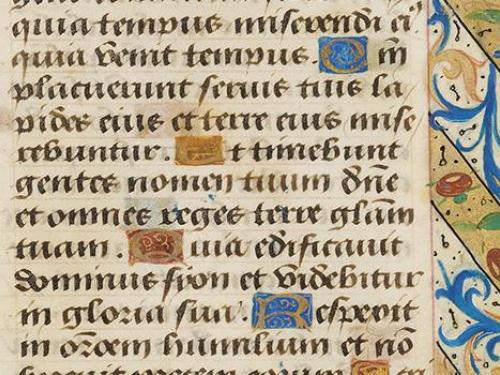 quia tempus miserendi ei⁹
quia venit tempus. Q m̄
placuerunt seruis tuis la
pides eius et terre eius mise
rebuntur. Et timebunt
gentes nomen tuum dn̄e
et omnes reges terre glām
tuam. Quia edificauit
dominus syon et videbitur
in gloria sua. Respexit
in or̄oem humilium et nō